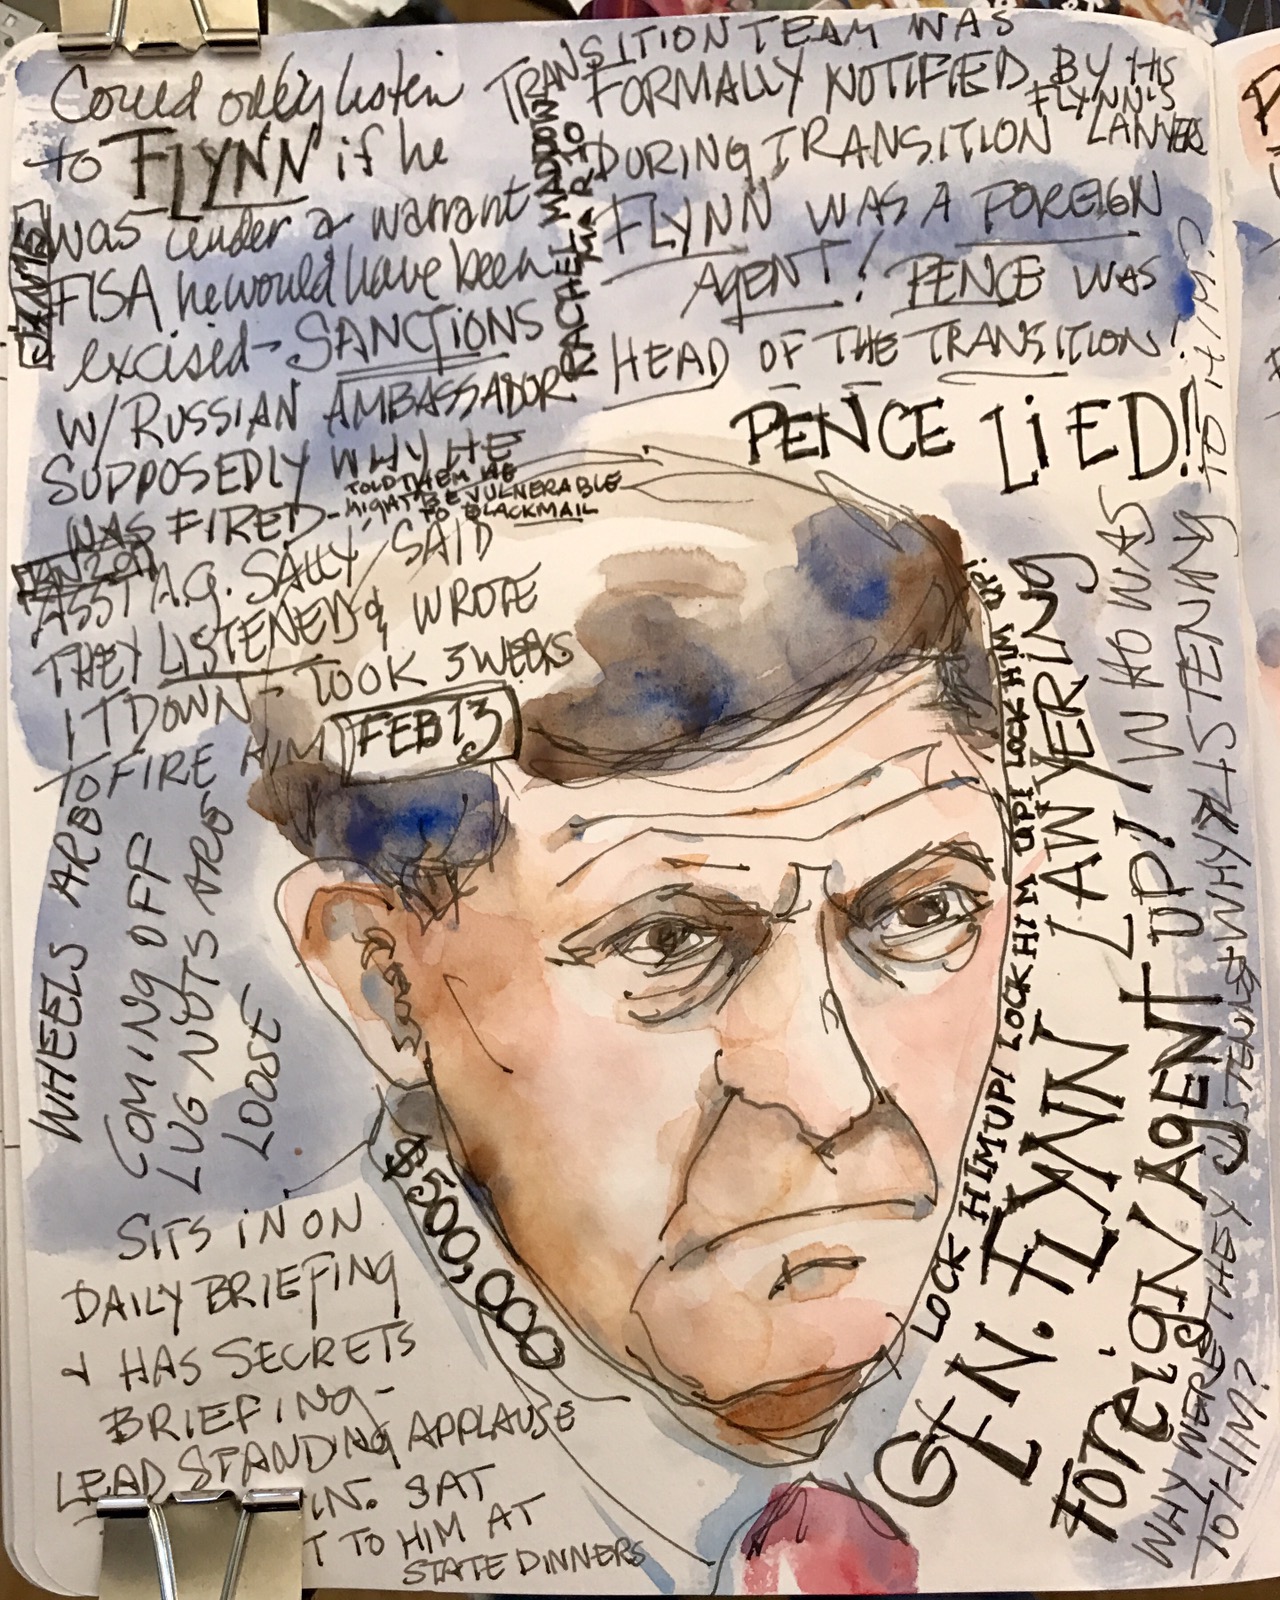 Could only listen
to FLYNN if he
was under a warrant
FISA he would have been
excised - SANCTIONS
W/ RUSSIAN AMBASSADOR
SUPPOSEDLY WHY HE
WAS FIRED -
TOLD THEM HE
MIGHT BE VULNERABLE
TO BLACKMAIL
JAN 29
ASST A.G. SALLY SAID
THEY LISTENED & WROTE
IT DOWN - TOOK 3 WEEKS
TO FIRE HIM FEB 13
RACHEL MADDOW
MAR 10
TRANSITION TEAM WAS
FORMALLY NOTIFIED BY HIS
FLYNN'S
DURING TRANSITION LAWYERS
FLYNN WAS A FOREIGN
AGENT! PENCE WAS
HEAD OF THE TRANSITION!
PENCE LIED!!
WHEELS ARE
COMING OFF
LUG NUTS ARE
LOOSE
$500,000
SITS IN ON
DAILY BRIEFING
& HAS SECRETS
BRIEFING -
LEAD STANDING APPLAUSE
IN. SAT
T TO HIM AT
STATE DINNERS
LOCK HIM UP! LOCK HIM UP! LOCK HIM UP! LOCK HIM UP!
GEN. FLYNN LAWYERING
FOREIGN AGENT UP! WHO WAS
WHY WERE THEY LISTENING & WHY LISTENING TO HIM?
TO HIM?